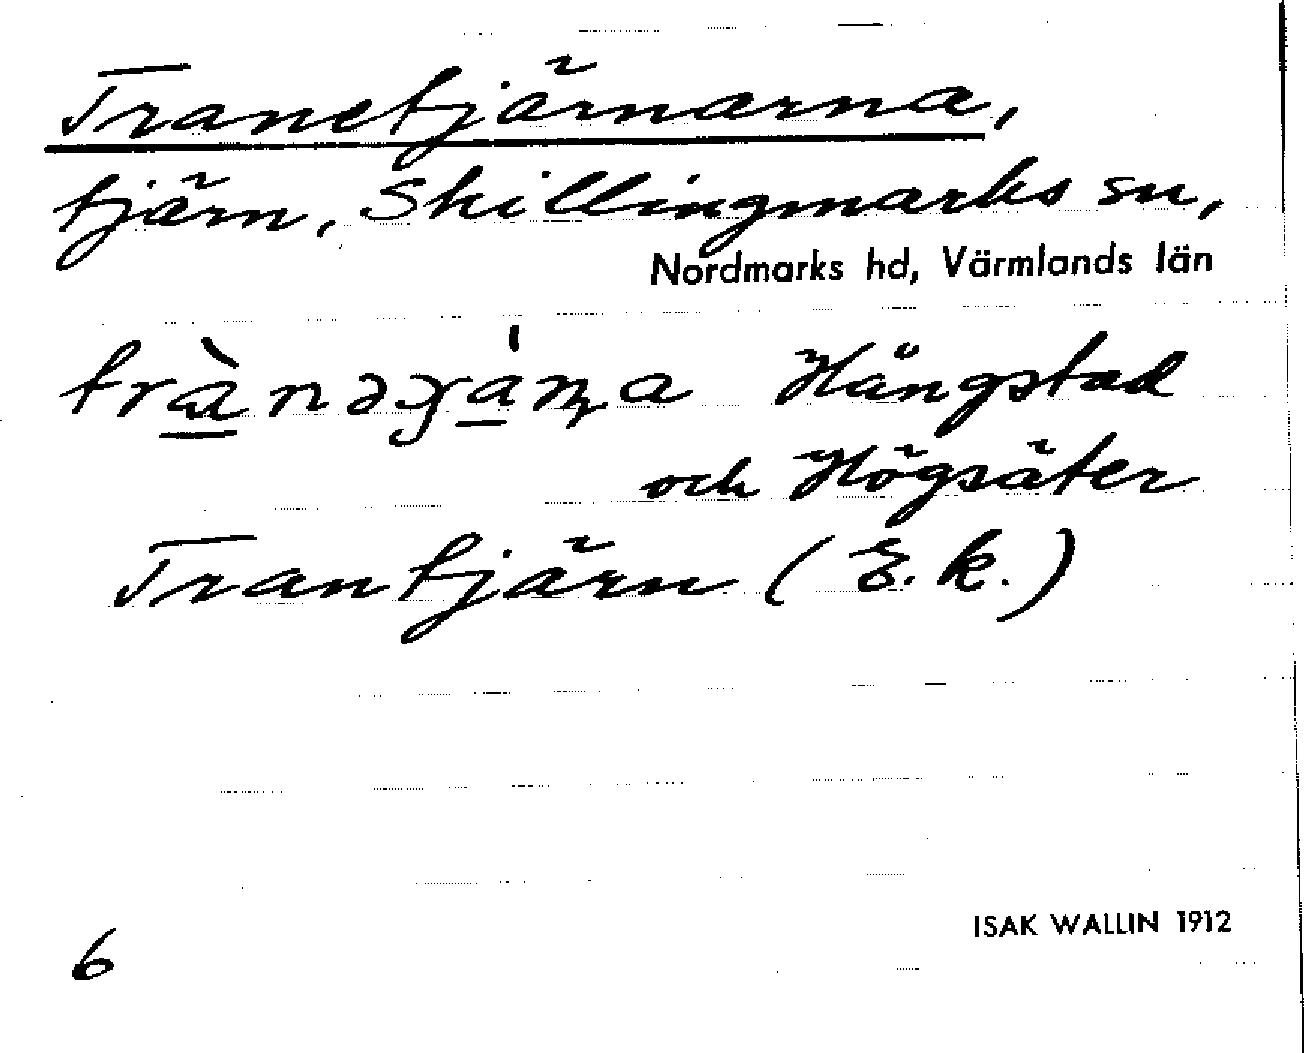 Tranetjärnarna,
tjärn, Skillingmarks sn,
Nordmarks hd, Värmlands län
Hängstad
och Högsäter
Trantjärn (E. k.)
6
ISAK WALLIN 1912